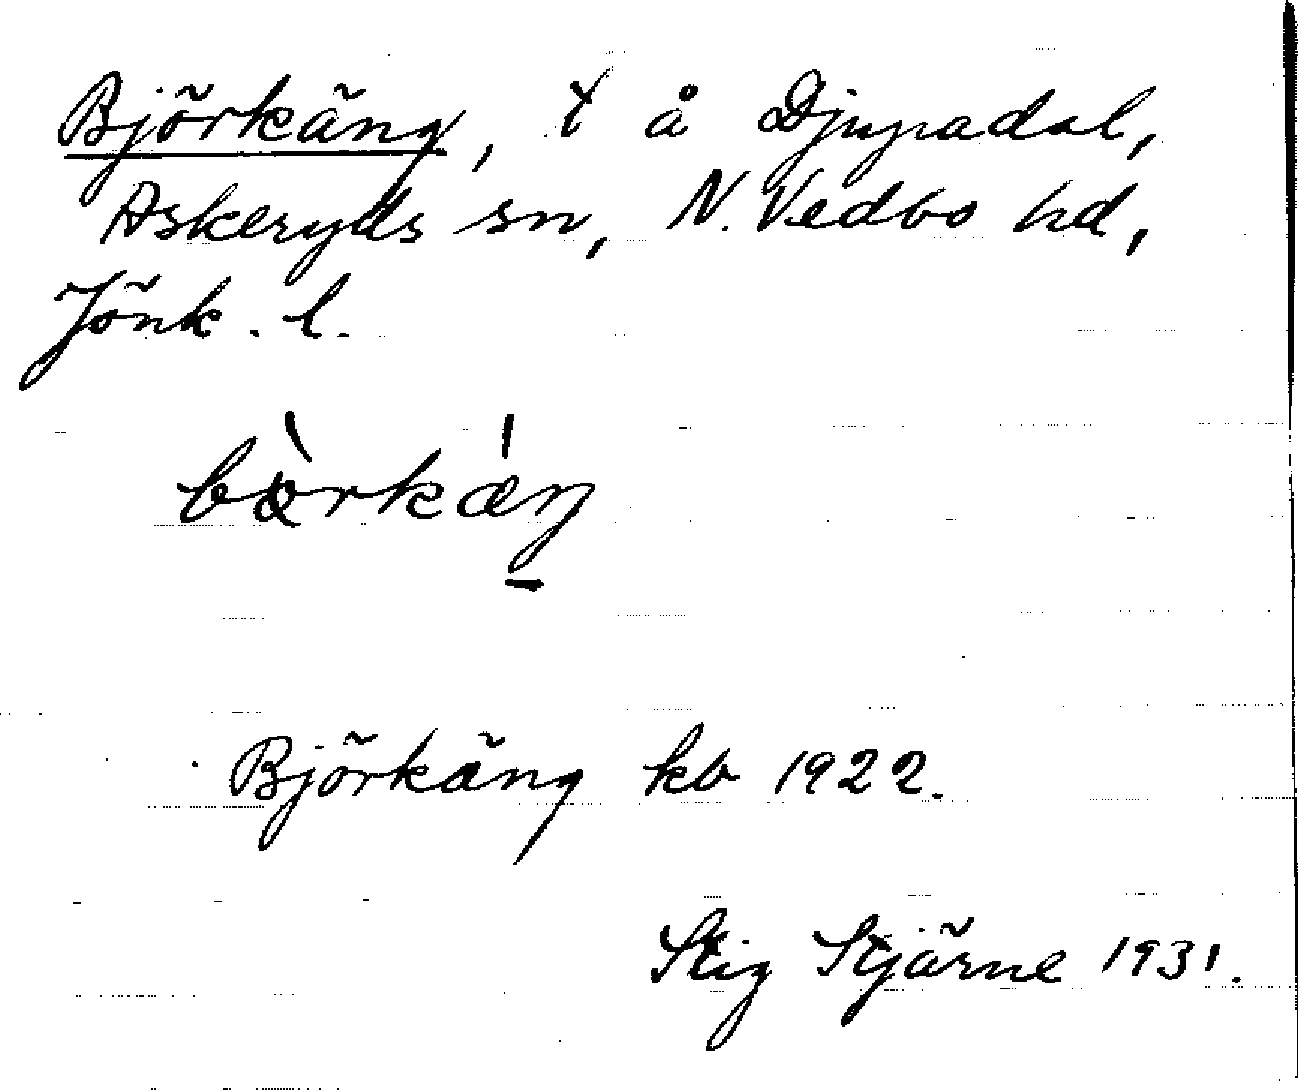 Björkäng, t å Djupadal,
Askeryds sn, N. Vedbo hd,
Jönk. l.
Björkäng kb 1922.
Stig Stjärne 1931.